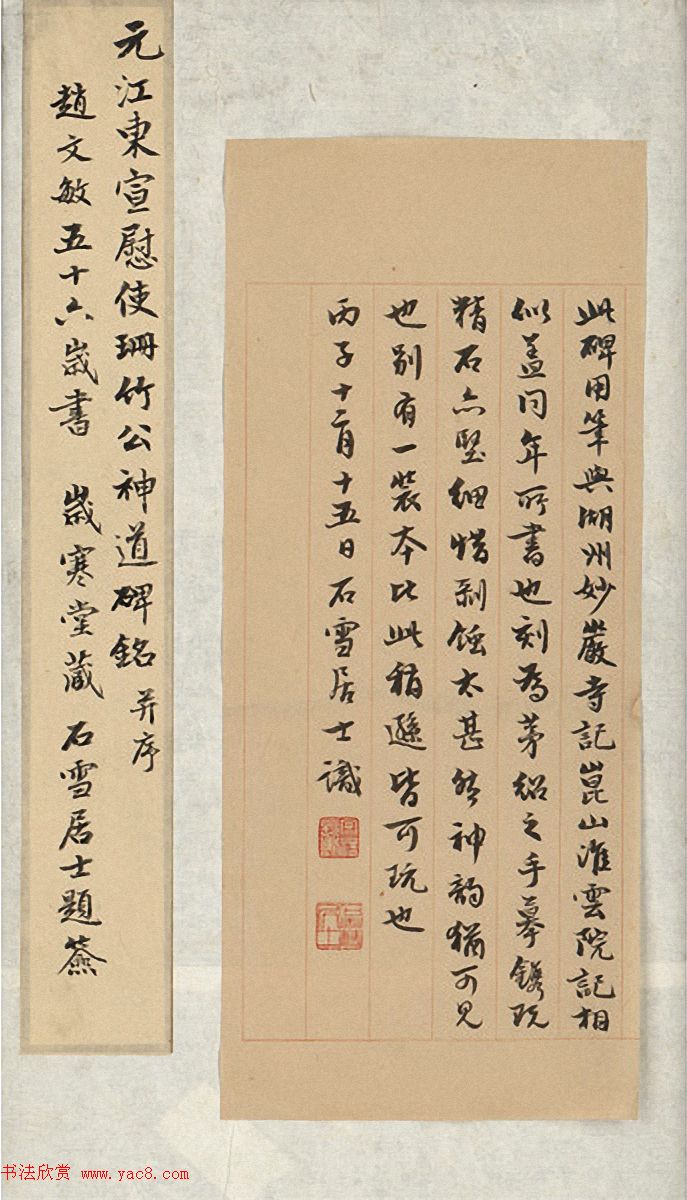 此碑用筆與湖州妙巖寺記崑山淮雲院記相
似盖同年所書也刻為茅紹之手摹鐫既
精石亦堅細惜剝蝕太甚然神韵猶可見
也別有一裝本比此稍遜皆可玩也
丙子十二月十五日石雪居士識
元江東宣慰使珊竹公神道碑銘 并序
趙文敏五十六歲書 歲寒堂藏 石雪居士題籤
书法欣赏 www.yac8.com